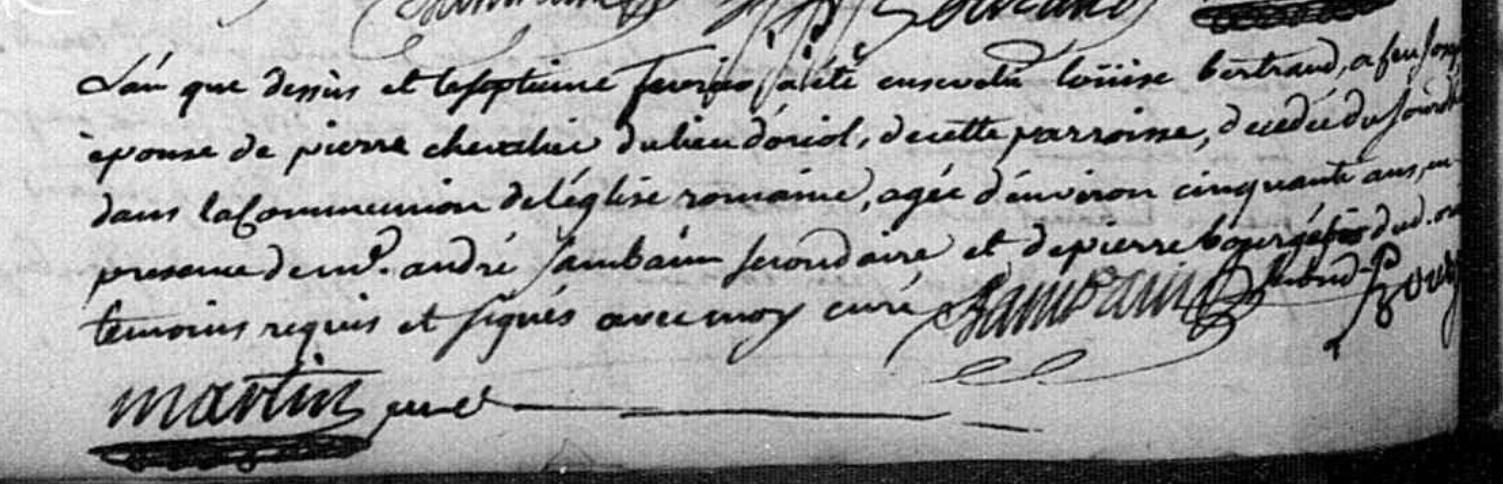 Bertrand
L'an que dessus et le septieme fevrier a été ensevelie loüise bertrand, a feu Joseph
épouse de pierre chevalier du lieu d'oriol, de cette parroisse, decedée du jour d'hier
dans la Communion de l'église romaine, agée d'environ cinquante ans, en
presence de mr. andré sambain secondaire et de pierre dud.
temoins requis et signés avec moy curé Sambain
martin curé